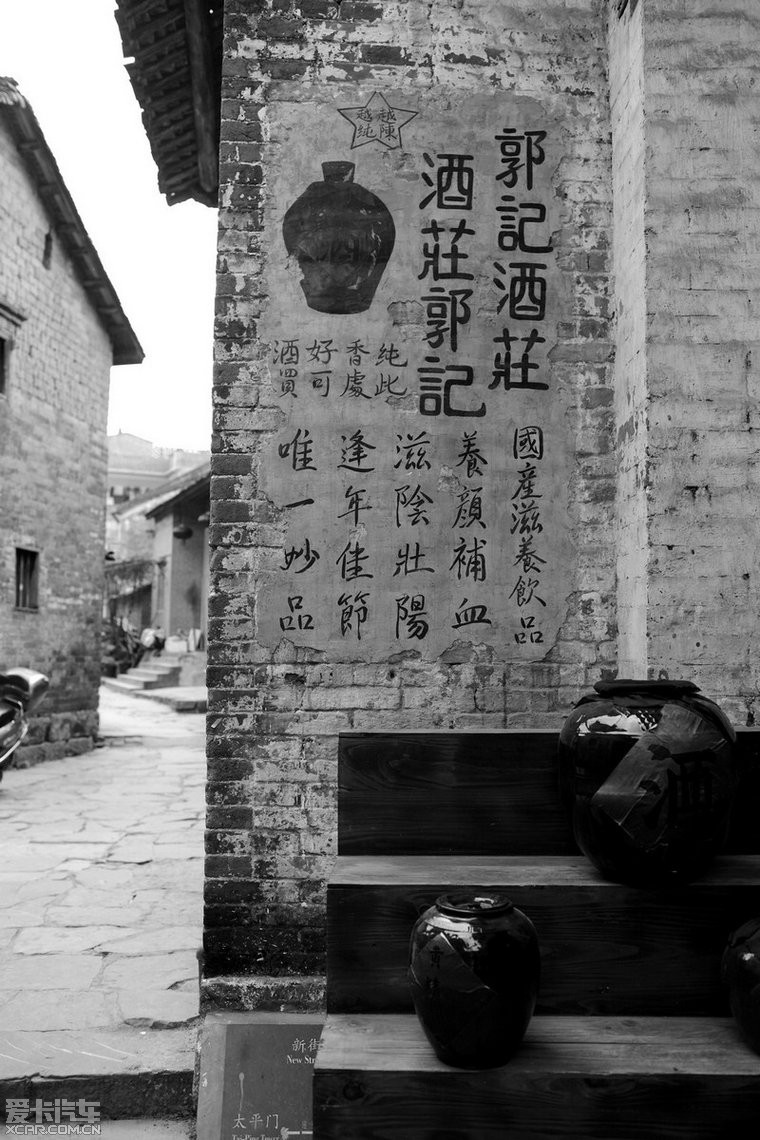 越陳
越純
郭記酒莊
酒莊郭記
純香好酒
此處可買
國産滋養飲品
養顔補血
滋陰壯陽
逢年佳節
唯一妙品
酒
新街
New Str
太平门
Tai-Ping Tower
爱卡汽车
XCAR.COM.CN